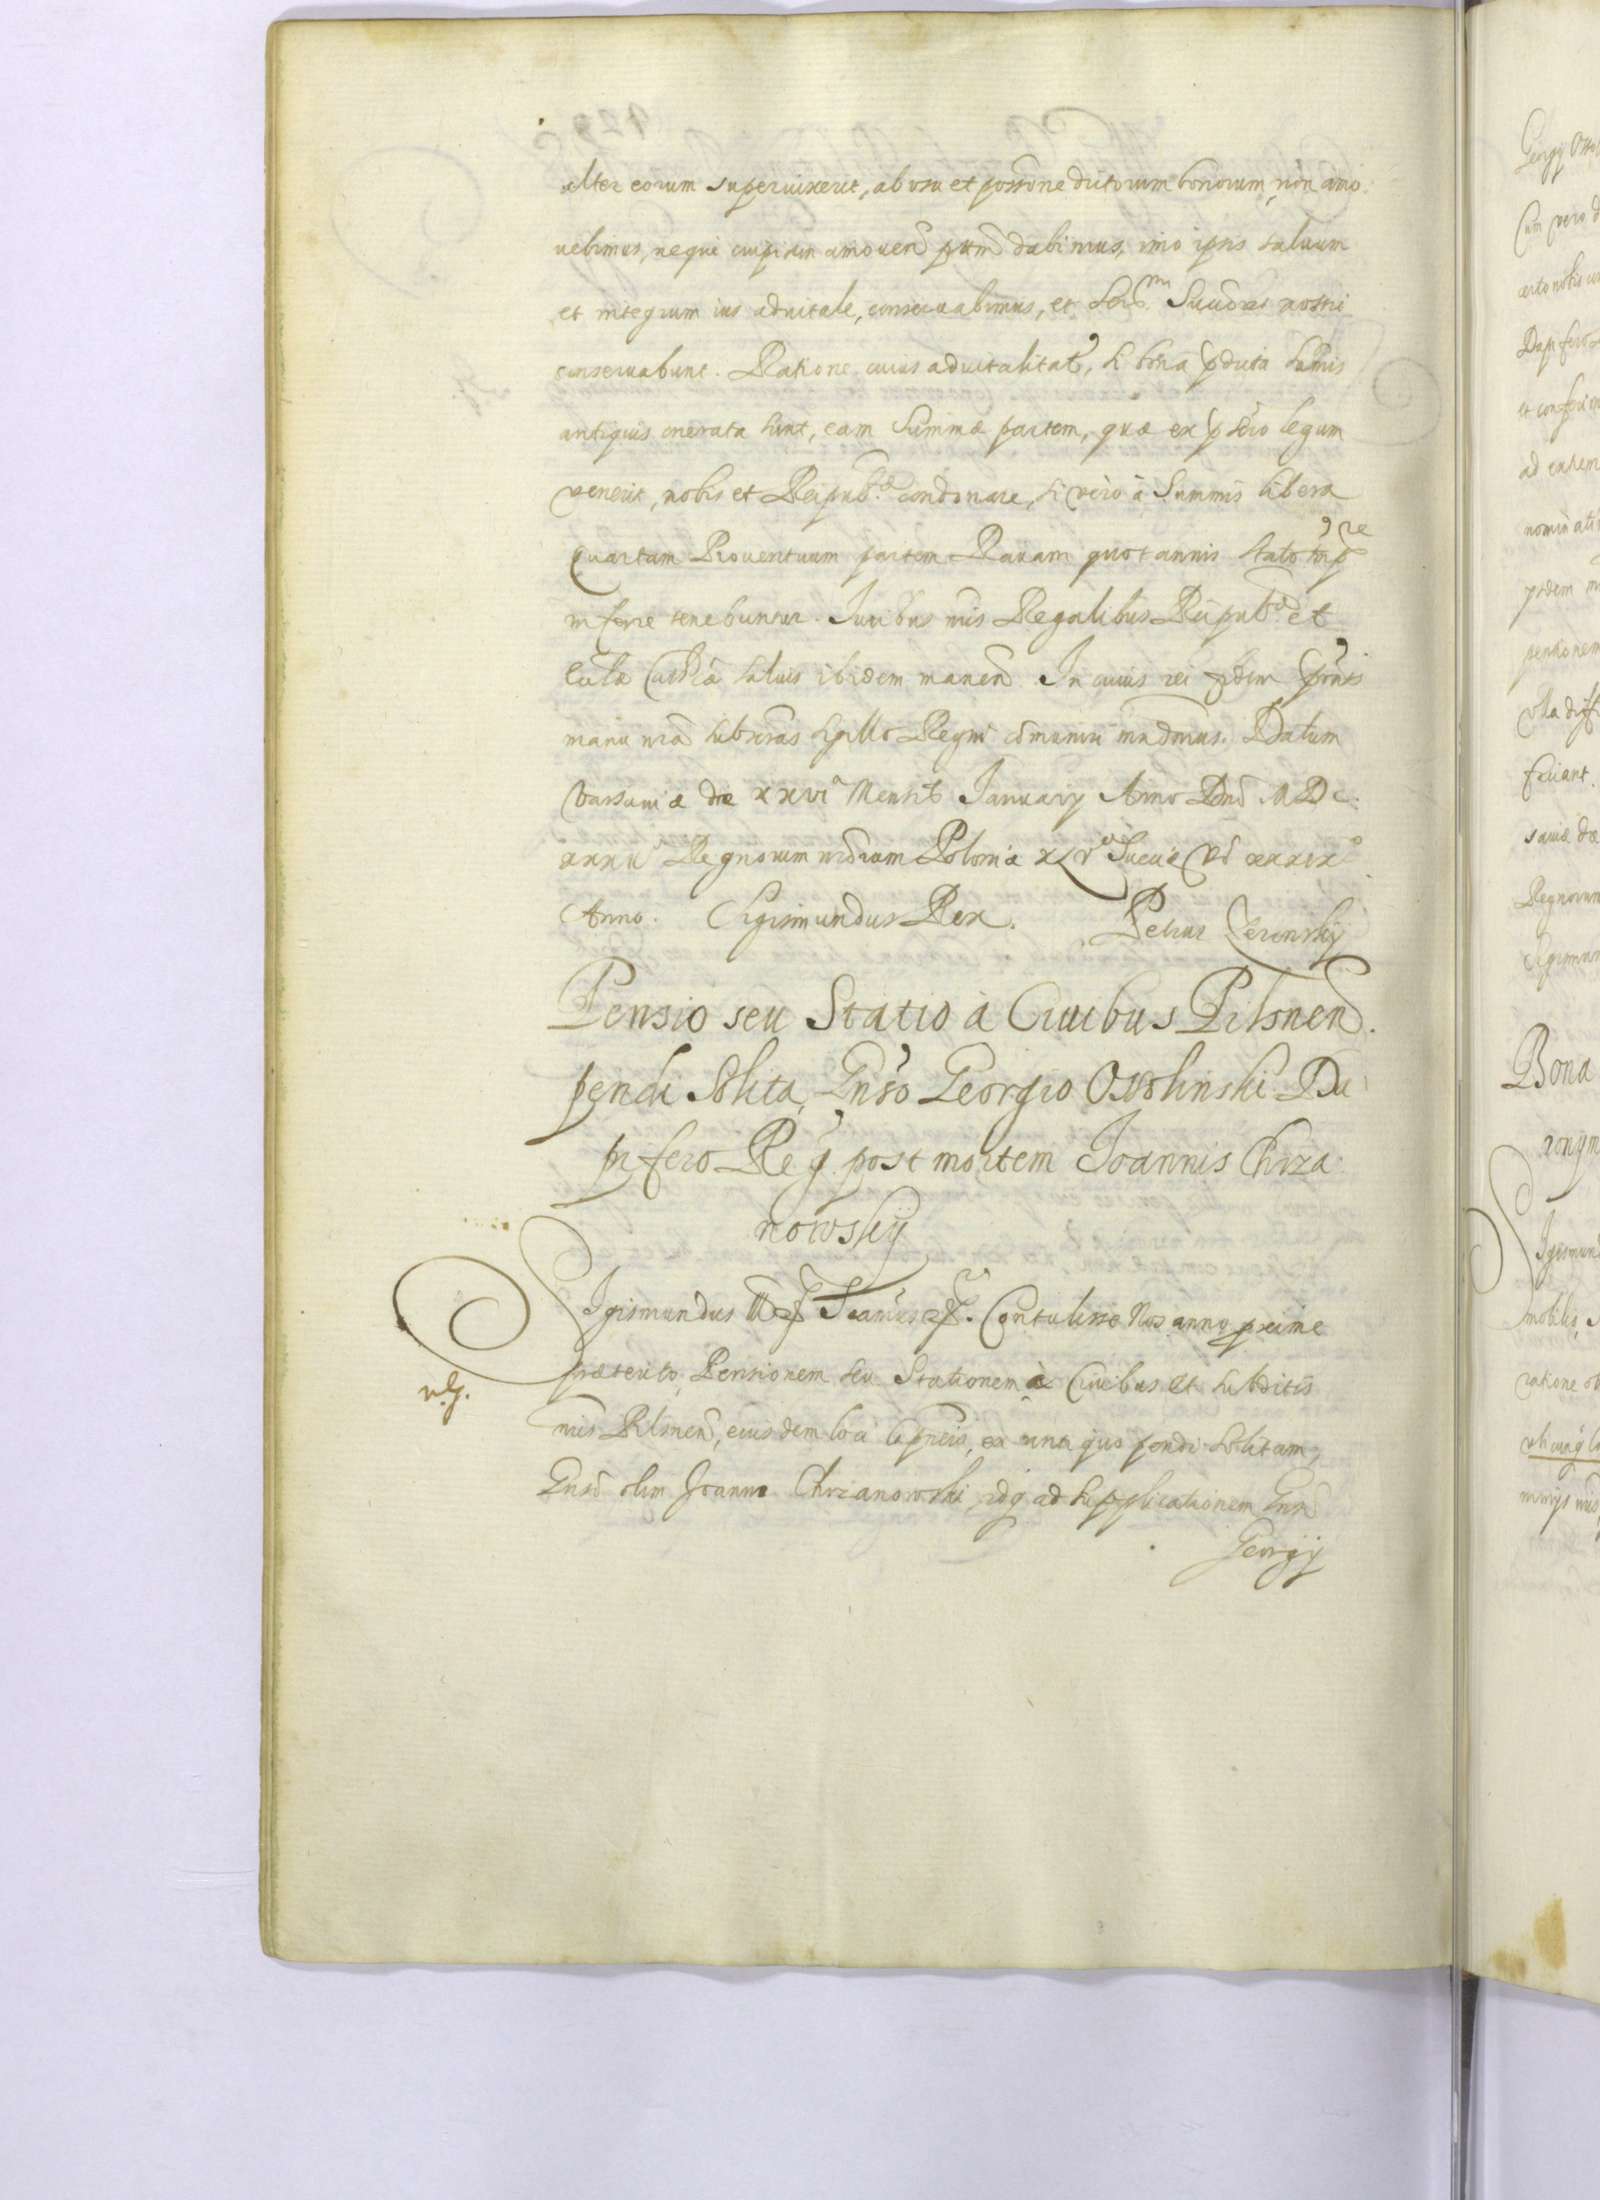 alter eorum superuixerit, ab usu et possone dictorum bonorum, non amo
uebimus, neque cuipiam amouen pttm dabimus, imo ipsis saluum
et integrum ius aduitale, conseruabimus, et Sermi Succres nostri
conseruabunt. Ratione cuius aduitalitat, si bona pdicta sumis
antiquis onerata sunt, eam Summæ partem, quæ ex pscrio legum
venerit, nobis et Reipub. condonare, si vero à Summis libera
Quartam Prouentuum partem Rauam quotannis stato tmpre
inferre tenebuntur. Iuribus nris Regalibus Reipubcæ et
Eccla Cathca saluis ibidem manen. In cuius rei fidem pntes
manu nra subscras sgillo Regni comuniri mndmus. Datum
Varsauiæ die XXVIa Mensis Ianuarij Anno Dni MDC.
XXXII Regnorum nrorum Poloniæ XLVo Sueciæ vo XXXIXo
Anno. Sigismundus Rex. Petrus Zeronskij
Pensio seu Statio à Ciuibus Pilsnen.
pendi solita, Gnso Georgio Ossolinski Da
pifero Reg. post mortem Ioannis Chrza
nowskij
Sigismundus III Contulisse Nos anno proxime
præterito, Pensionem seu Stationem à Ciuibus et subditis
nris Pilsnen, eiusdem loci ex antiquo pendi solitam,
Gnso olim Joanni Chrzanowski idq ad supplicationem Gnsi
Georgij
Georgij Osso
Cum vero d
certo nobis
Dapifero
et conferim
ad extrem
ptdem
pensionem
vlla diff
faciant.
sauiæ die
Regnorum
Sigismun
Bona
Sigismun
mobilis,
ratione